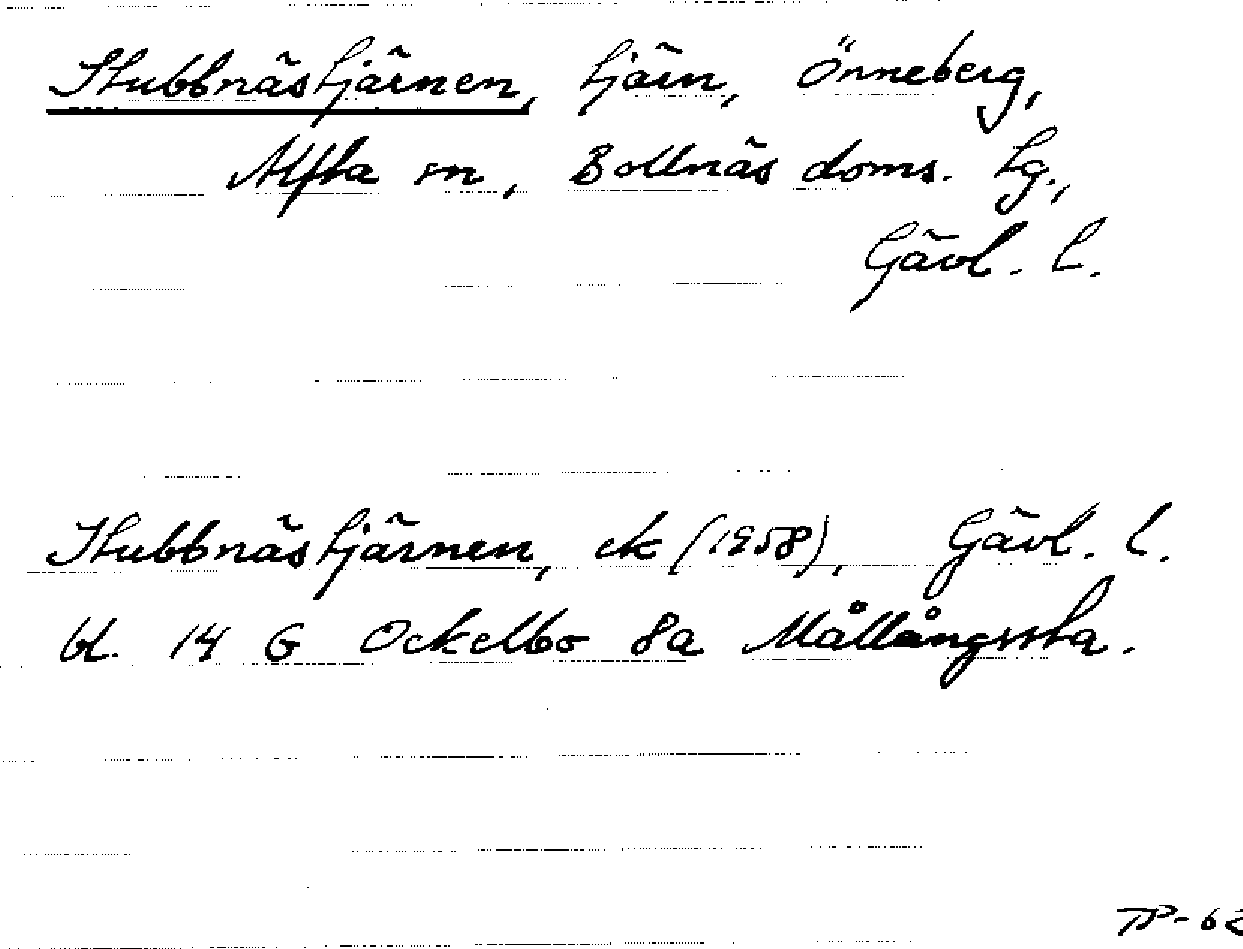 Stubbnästjärnen, tjärn, Önneberg,
Alfta sn, Bollnäs doms. tg.,
Gävl. l.
Stubbnästjärnen, ek (1958), Gävl. l.
bl. 14 G Ockelbo 8a Mållångssta.
TP-62